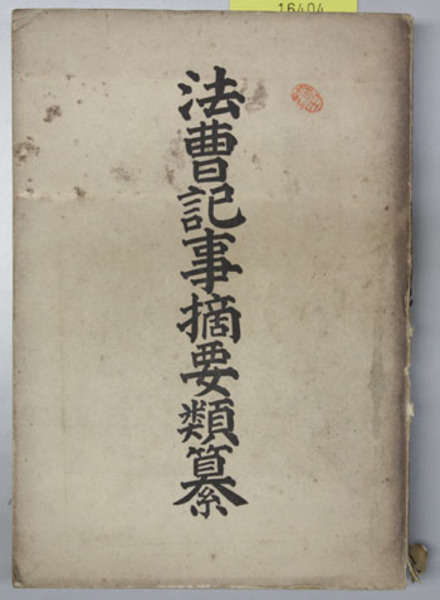 16404
法曹記事摘要類纂